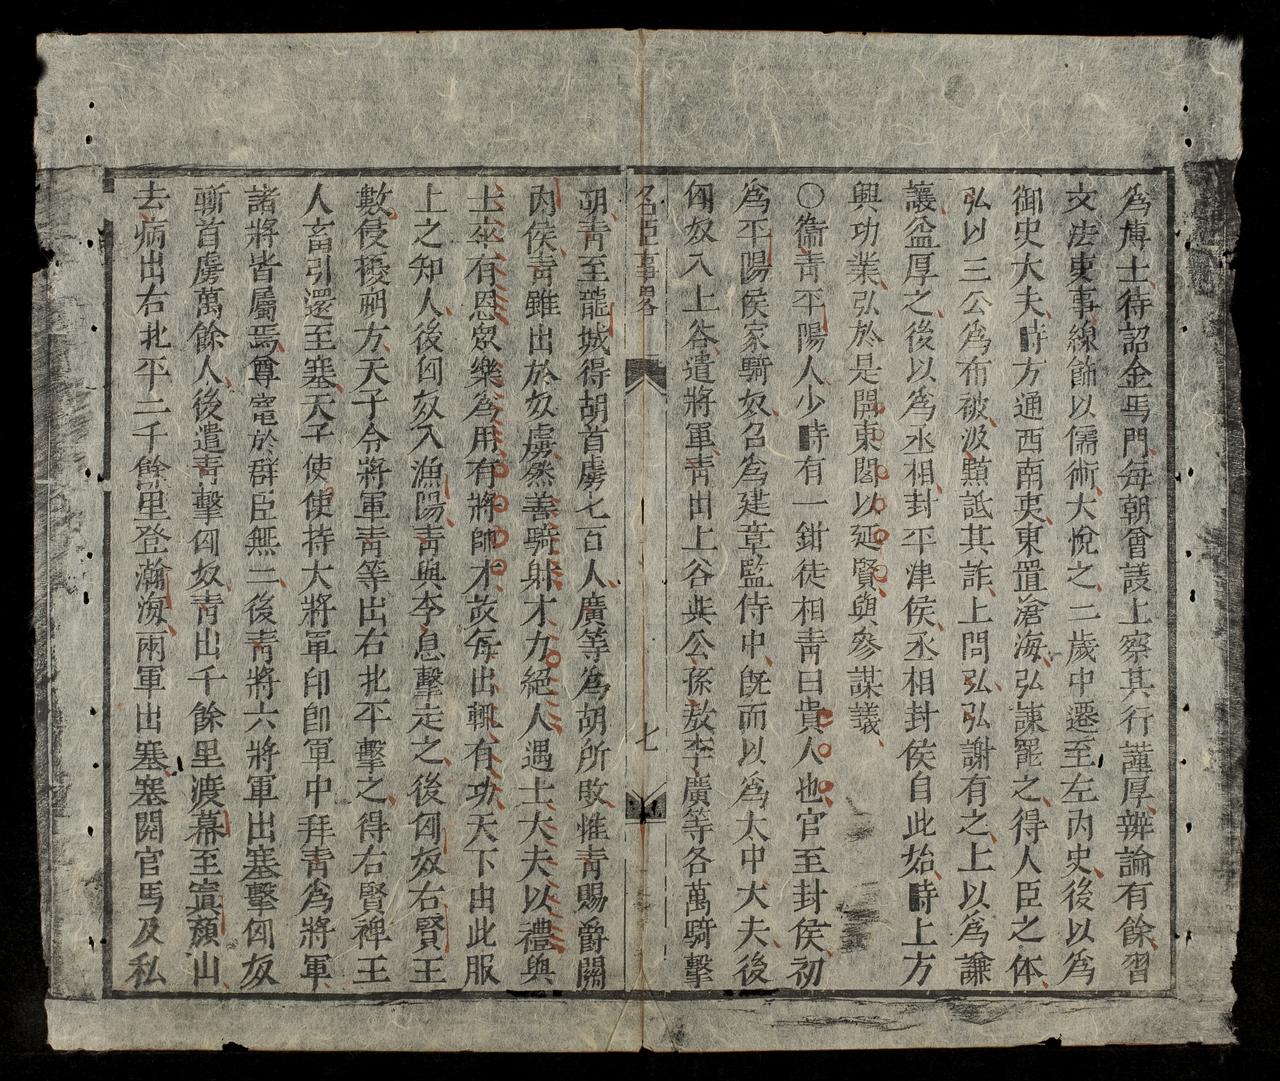 爲博士待詔金馬門每朝會議上察其行謹厚辨論有餘習
文法吏事緣飾以儒術大悅之二歲中遷至左內史後以爲
御史大夫時方通西南夷東置滄海弘諫罷之得人臣之体
弘以三公爲布被汲黯詆其詐上問弘弘謝有之上以爲謙
讓益厚之後以爲丞相封平津侯丞相封侯自此始時上方
興功業弘於是開東閣以延賢與參謀議
〇衞青平陽人少時有一鉗徒相青曰貴人也官至封侯初
爲平陽侯家騎奴召爲建章監侍中旣而以爲太中大夫後
匈奴入上谷遣將軍青出上谷與公孫敖李廣等各萬騎擊
名臣事畧
七
胡青至龍城得胡首虜七百人廣等爲胡所敗惟青賜爵關
內侯青雖出於奴虜然善騎射才力絕人遇士大夫以禮與
士卒有恩衆樂爲用有將帥才故每出輒有功天下由此服
上之知人後匈奴入漁陽青與李息擊走之後匈奴右賢王
數侵擾朔方天子令將軍青等出右北平擊之得右賢裨王
人畜引還至塞天子使使持大將軍印卽軍中拜青爲將軍
諸將皆屬焉尊寵於群臣無二後青將六將軍出塞擊匈奴
斬首虜萬餘人後遣青擊匈奴青出千餘里渡幕至寘顏山
去病出右北平二千餘里登瀚海兩軍出塞塞閱官馬及私